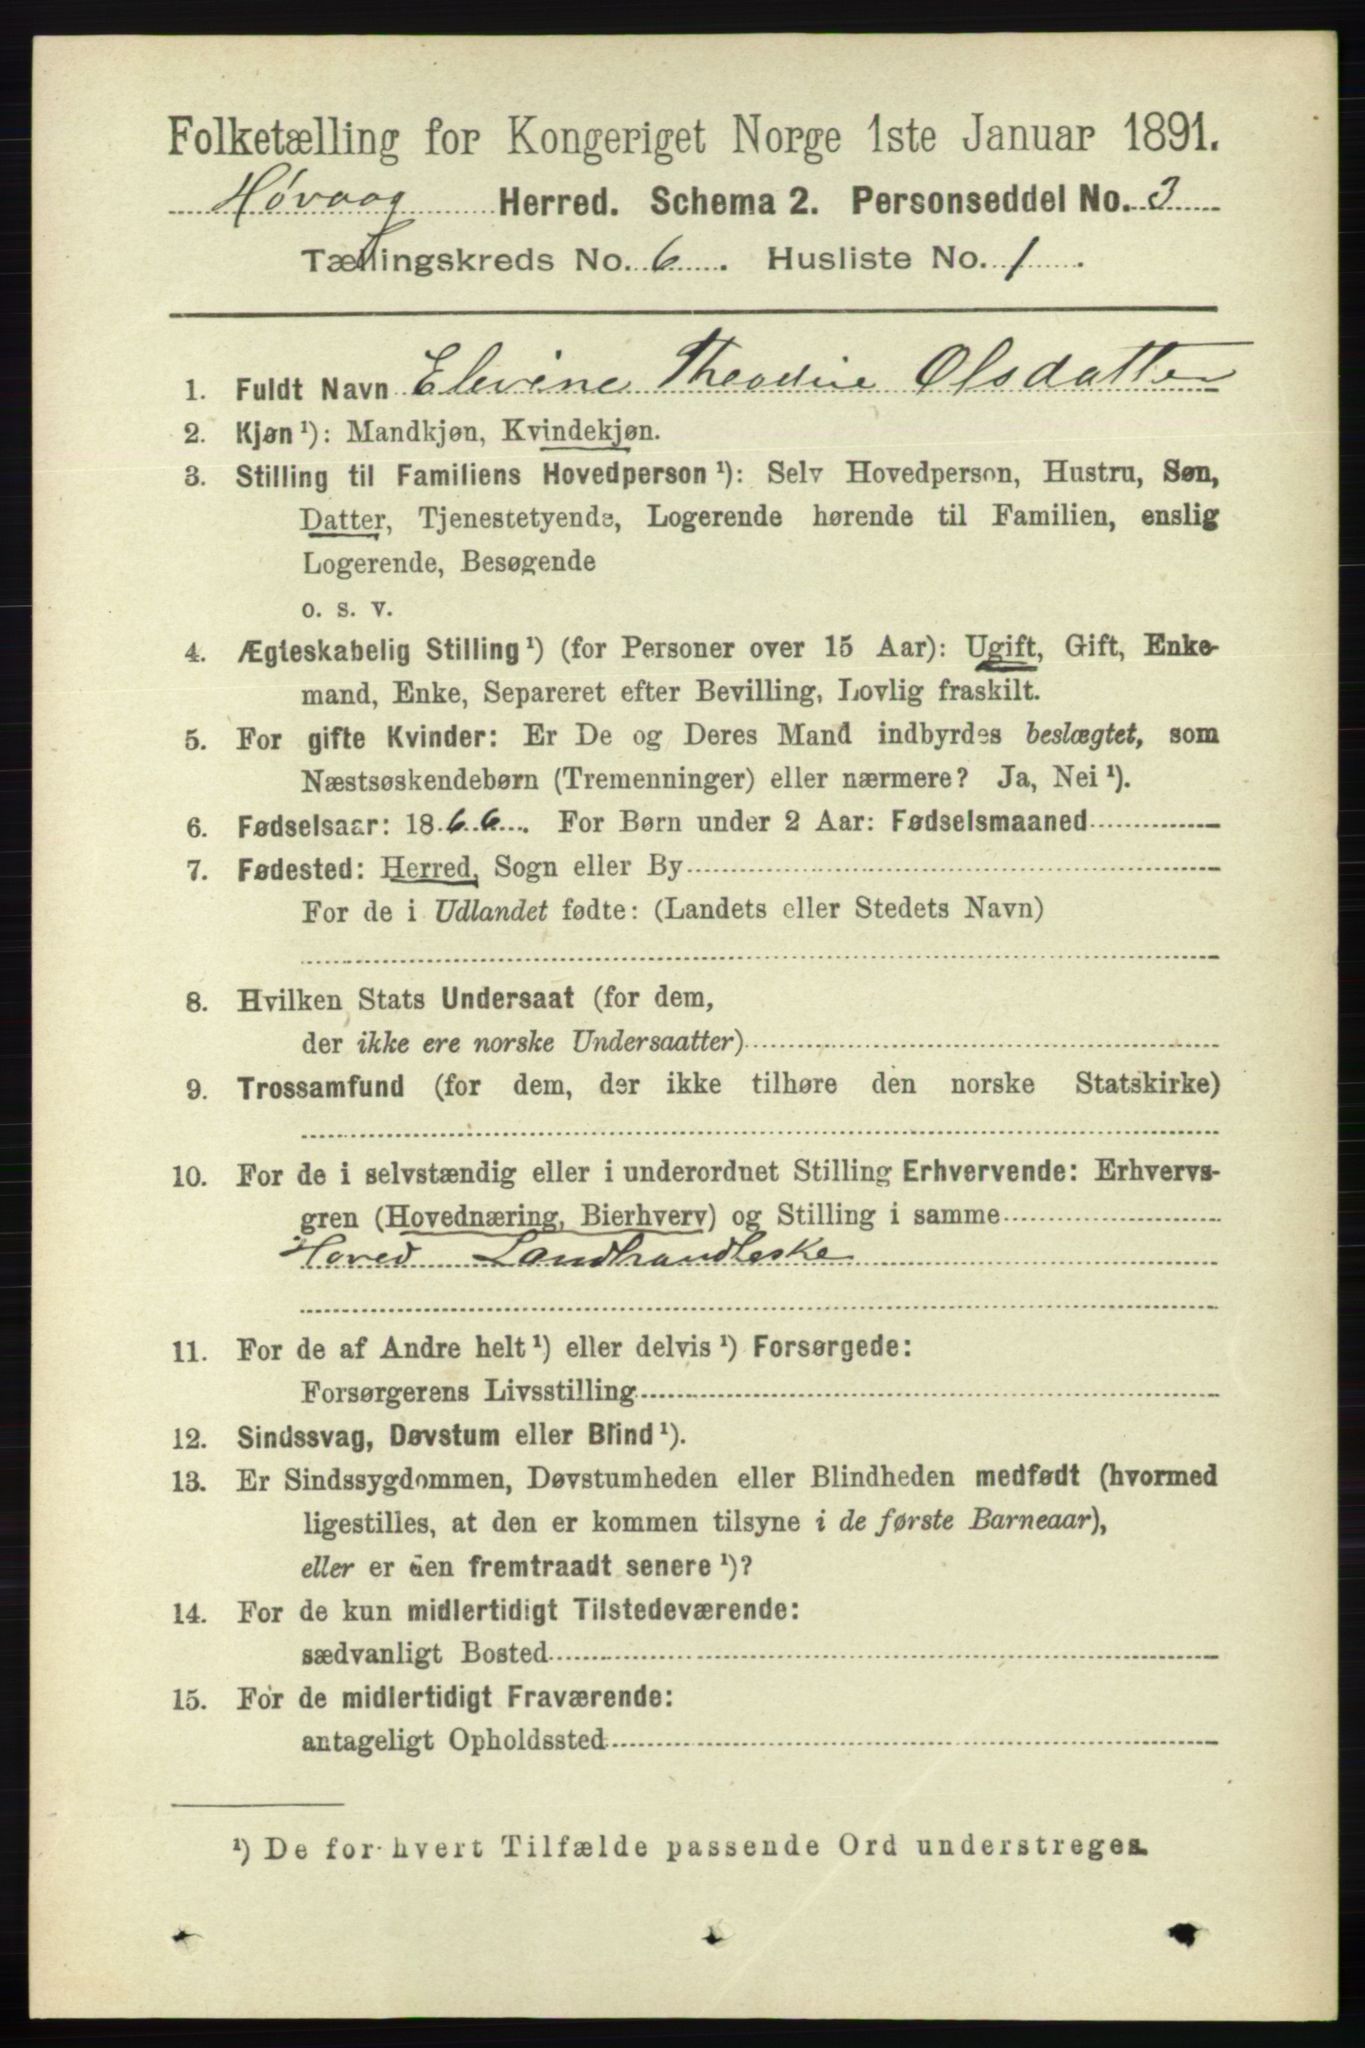 Folketælling for Kongeriget Norge 1ste Januar 1891.
Høvaag Herred. Schema 2. Personseddel No. 3
Tællingskreds No. 6. Husliste No. 1.
1. Fuldt Navn Elevine Theodine Olsdatter
2. Kjøn ¹): Mandkjøn, Kvindekjøn.
3. Stilling til Familiens Hovedperson ¹): Selv Hovedperson, Hustru, Søn,
Datter, Tjenestetyende, Logerende hørende til Familien, enslig
Logerende, Besøgende
o. s. v.
4. Ægteskabelig Stilling ¹) (for Personer over 15 Aar): Ugift, Gift, Enke-
mand, Enke, Separeret efter Bevilling, Lovlig fraskilt.
5. For gifte Kvinder: Er De og Deres Mand indbyrdes beslægtet, som
Næstsøskendebørn (Tremenninger) eller nærmere? Ja, Nei ¹).
6. Fødselsaar: 1866. For Børn under 2 Aar: Fødselsmaaned
7. Fødested: Herred, Sogn eller By
For de i Udlandet fødte: (Landets eller Stedets Navn)
8. Hvilken Stats Undersaat (for dem,
der ikke ere norske Undersaatter)
9. Trossamfund (for dem, der ikke tilhøre den norske Statskirke)
10. For de i selvstændig eller i underordnet Stilling Erhvervende: Erhvervs-
gren (Hovednæring, Bierhverv) og Stilling i samme
Hoved Landhandleske
11. For de af Andre helt ¹) eller delvis ¹) Forsørgede:
Forsørgerens Livsstilling
12. Sindssvag, Døvstum eller Blind ¹).
13. Er Sindssygdommen, Døvstumheden eller Blindheden medfødt (hvormed
ligestilles, at den er kommen tilsyne i de første Barneaar),
eller er den fremtraadt senere ¹)?
14. For de kun midlertidigt Tilstedeværende:
sædvanligt Bosted
15. For de midlertidigt Fraværende:
antageligt Opholdssted
¹) De for hvert Tilfælde passende Ord understreges.